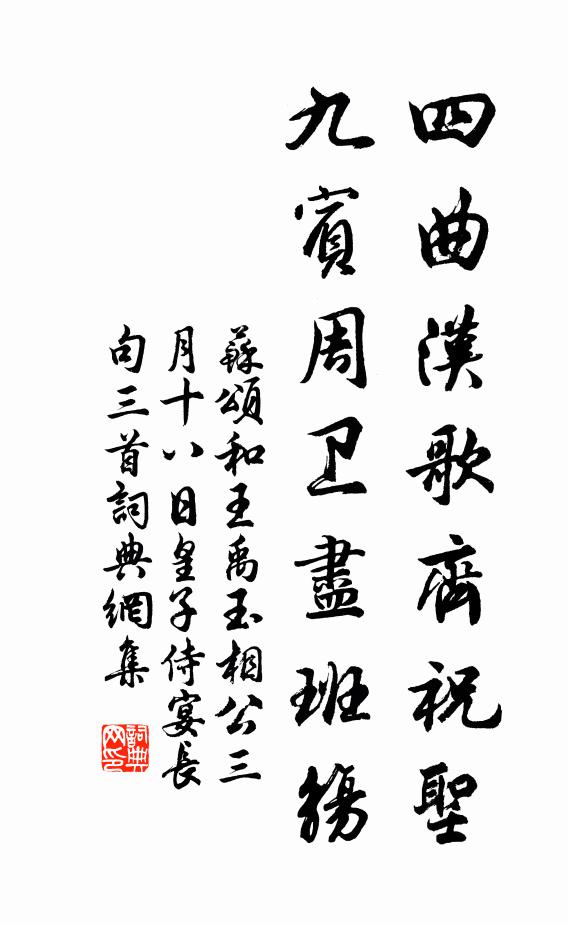 四曲漢歌齊祝聖
九賓周卫盡班觴
蘇頌和王禹玉相公三
月十八日皇子侍宴長
句三首詞典網集
詞典网印